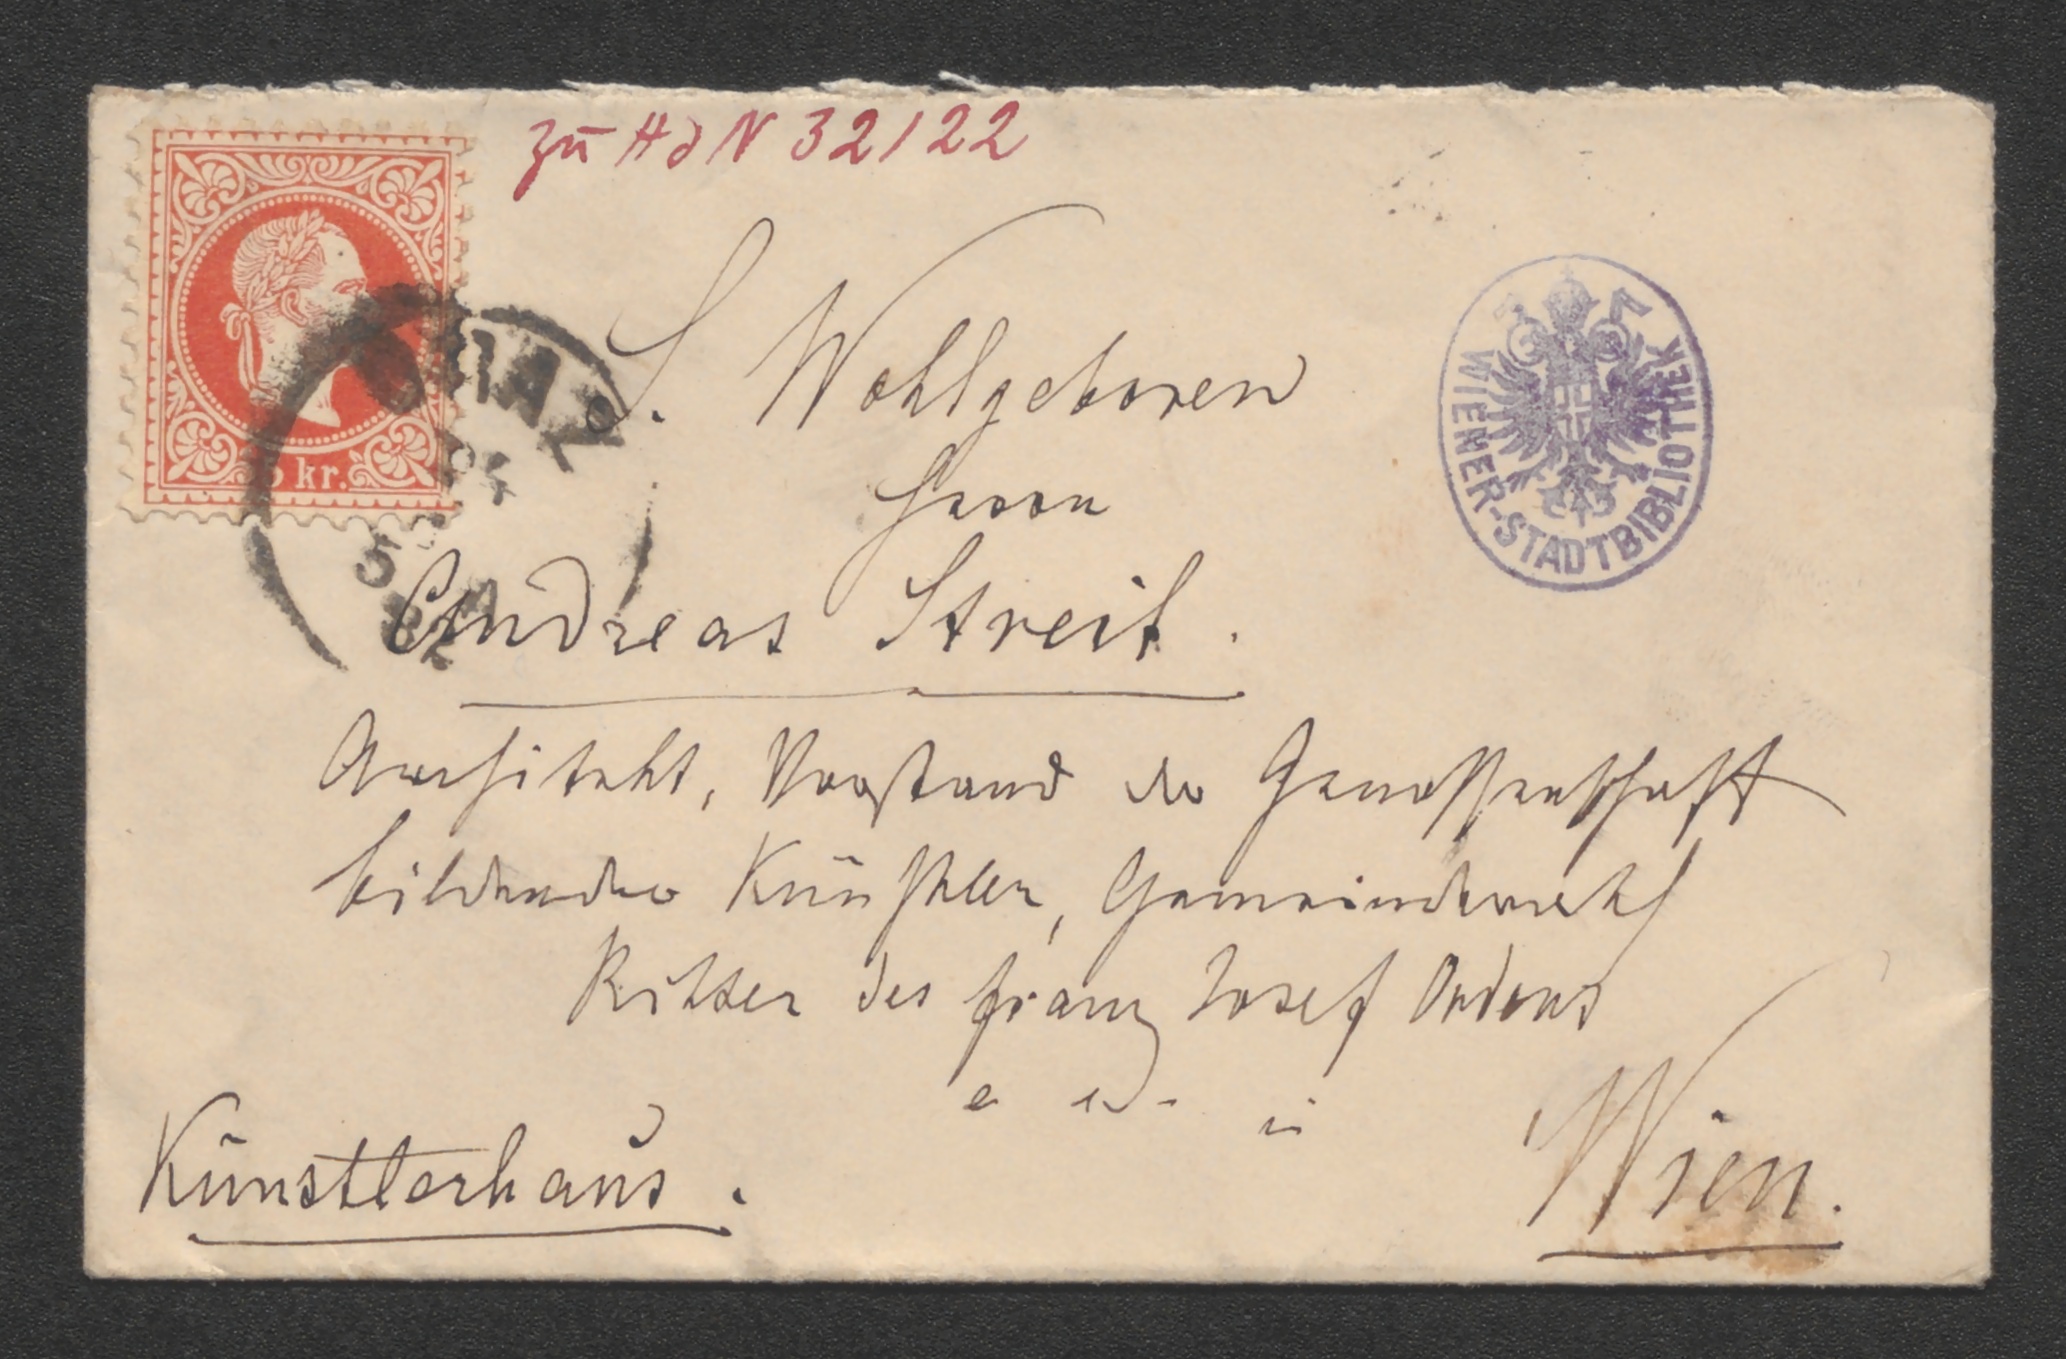 zu HdN 32/22
S. Wohlgeboren
Herrn
Andreas Streit.
Architekt, Vorstand der Genossenschaft
bildender Künstler, Gemeinderath
Ritter des Franz Josef Ordens
in
Künstlerhaus.
Wien.
kr.
GRAZ
WIENER-STADTBIBLIOTHEK